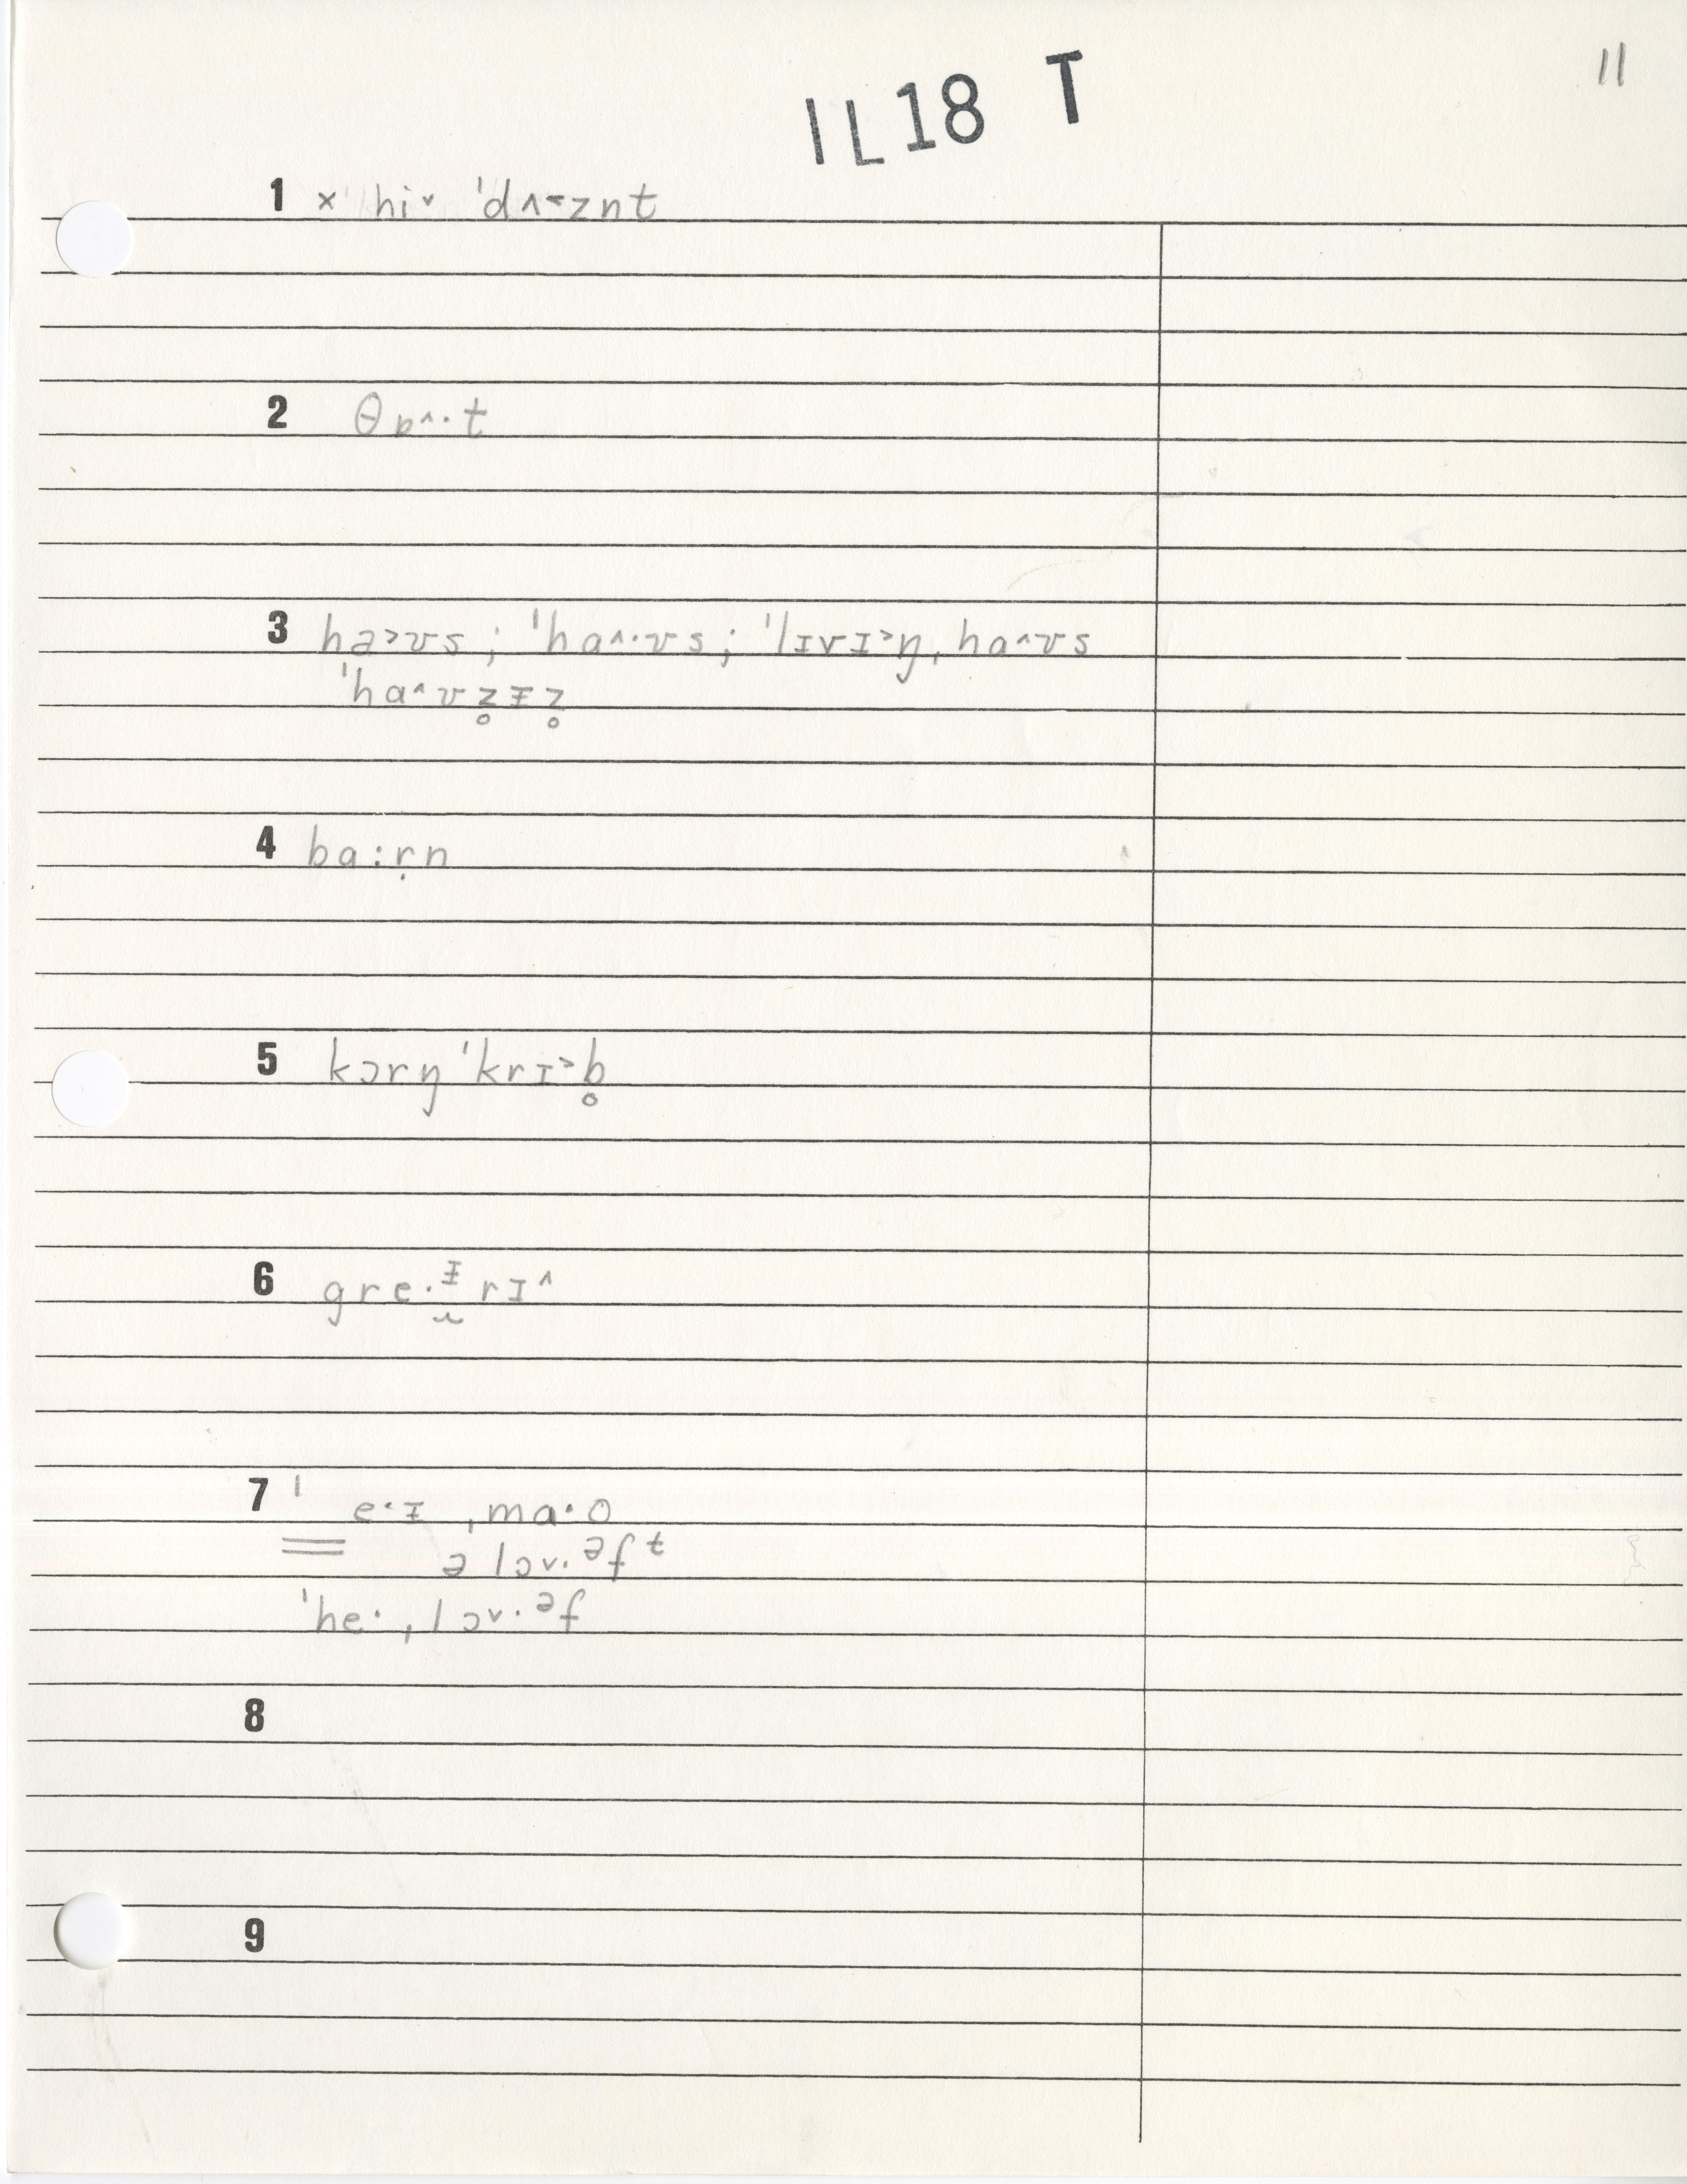 11
IL18 T
1 × hi˅ ˈdʌ˂znt
2 θɒ˄·t
3 ha˃ʊs ; ˈha˄·ʊs ; ˈlɪvɪ˃ŋˌha˄ʊs
ˈha˄ʊz̥ᵻz̥
4 ba:ṛn
5 kɔrŋˈkrɪ˃b̥
6 gre·ᵻ̯rɪ˄
7 ˈ e·ɪ ˌma·o
ə lɔ˅·ᵊfᵗ
ˈhe·ˌlɔ˅·ᵊf
8
9